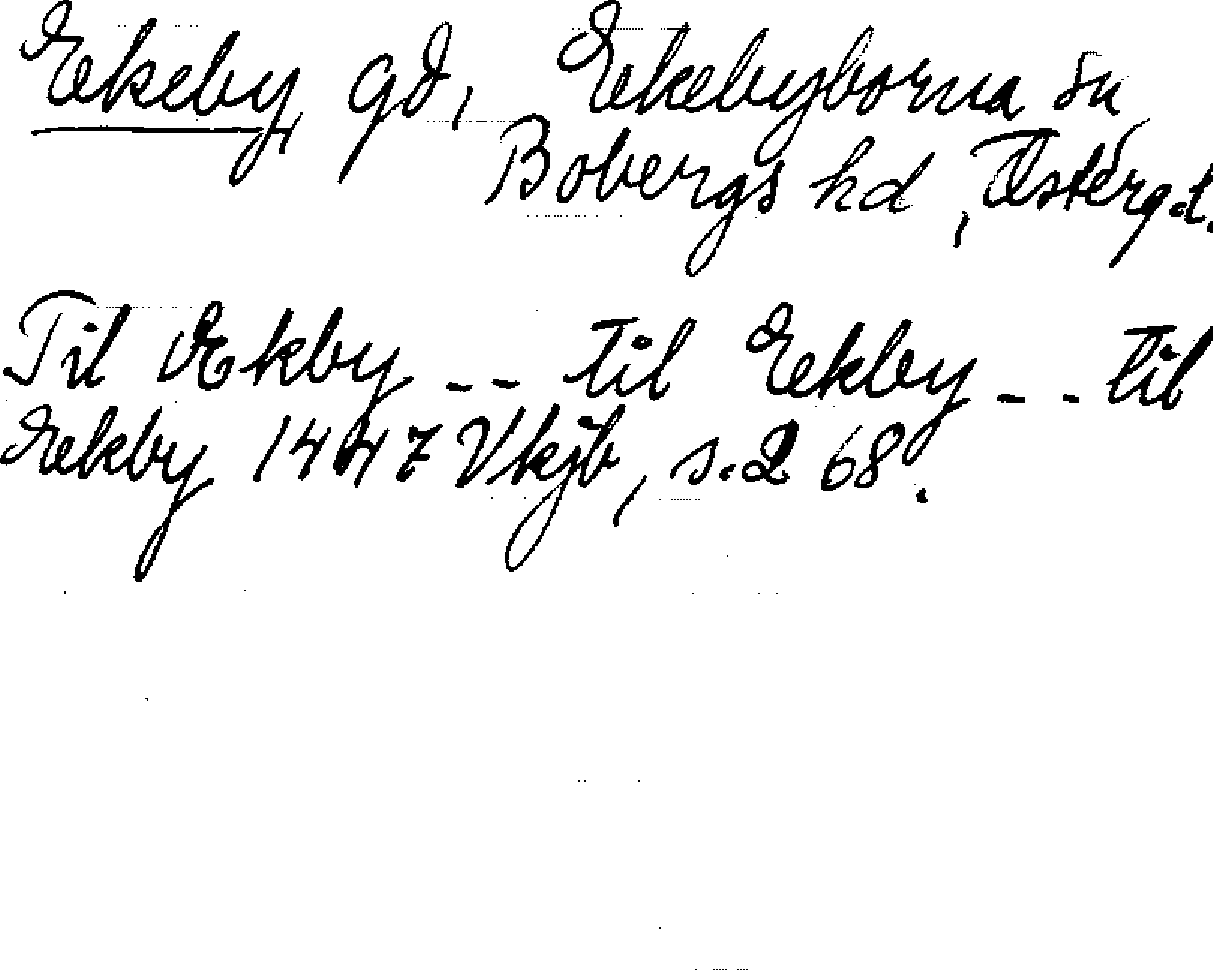 Ekeby, gd, Ekebyborna sn,
Bobergs hd, Österg.l.
Til Ekby _ _ til Ekby _ _ til
Ekby 1447 Vkjb, s. 268.